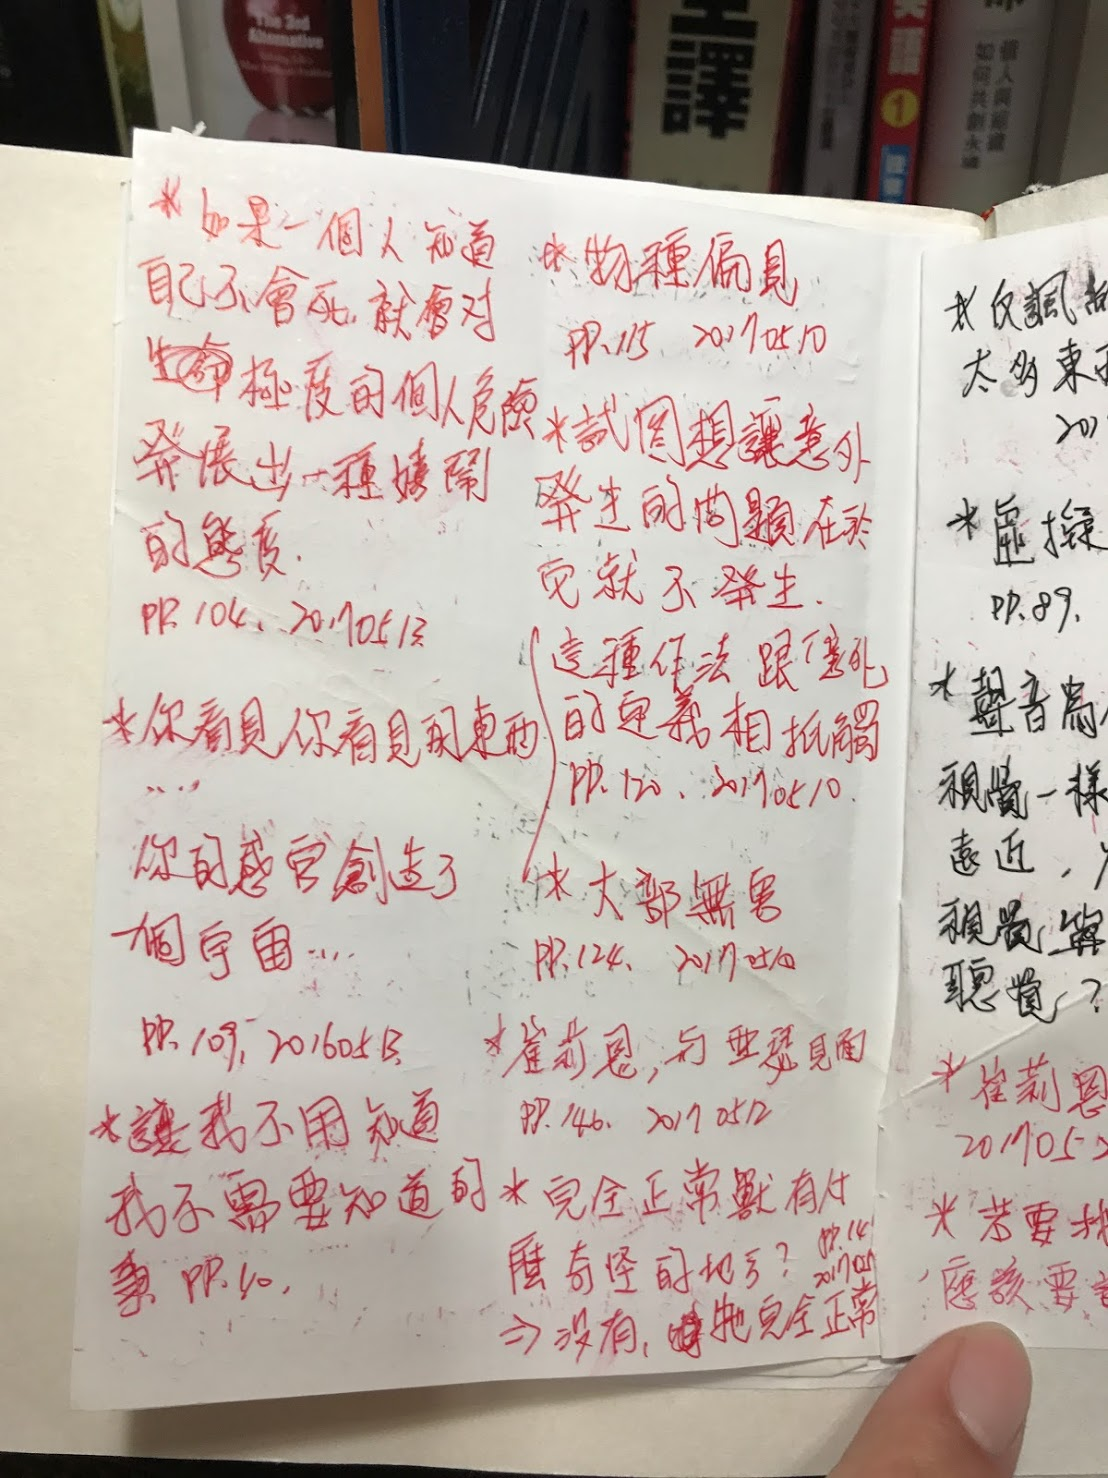 The 3rd
Alternative
全譯
英語
1
個人與組織
如何共創永續
*如果一個人知道
自己不會死,就會对
生命極度的個人危險
發展出一種嬉鬧
的態度.
PP. 104. 20170513
*你看見你看見的東西
....
你的感官創造了
一個宇宙...
PP. 109, 20160513
*讓我不用知道
我不需要知道的
事 PP. 10.
*物種偏見
PP. 115 20170510
*試图想讓意外
發生的問題在於
它就不發生.
這種作法跟意外
的定義相抵觸
PP. 120. 20170510.
*大部無害
PP. 124. 20170510
*崔莉恩,与亞瑟見面
PP. 146. 20170512
*完全正常獸有什
麼奇怪的地方? PP. 14
⇒没有,牠完全正常
*反諷
太多東西
201
*虛擬
PP. 89.
*聲音為
視覺一樣
遠近,
視覺與
聽覺?
*崔莉恩
201705
*若要
應該要